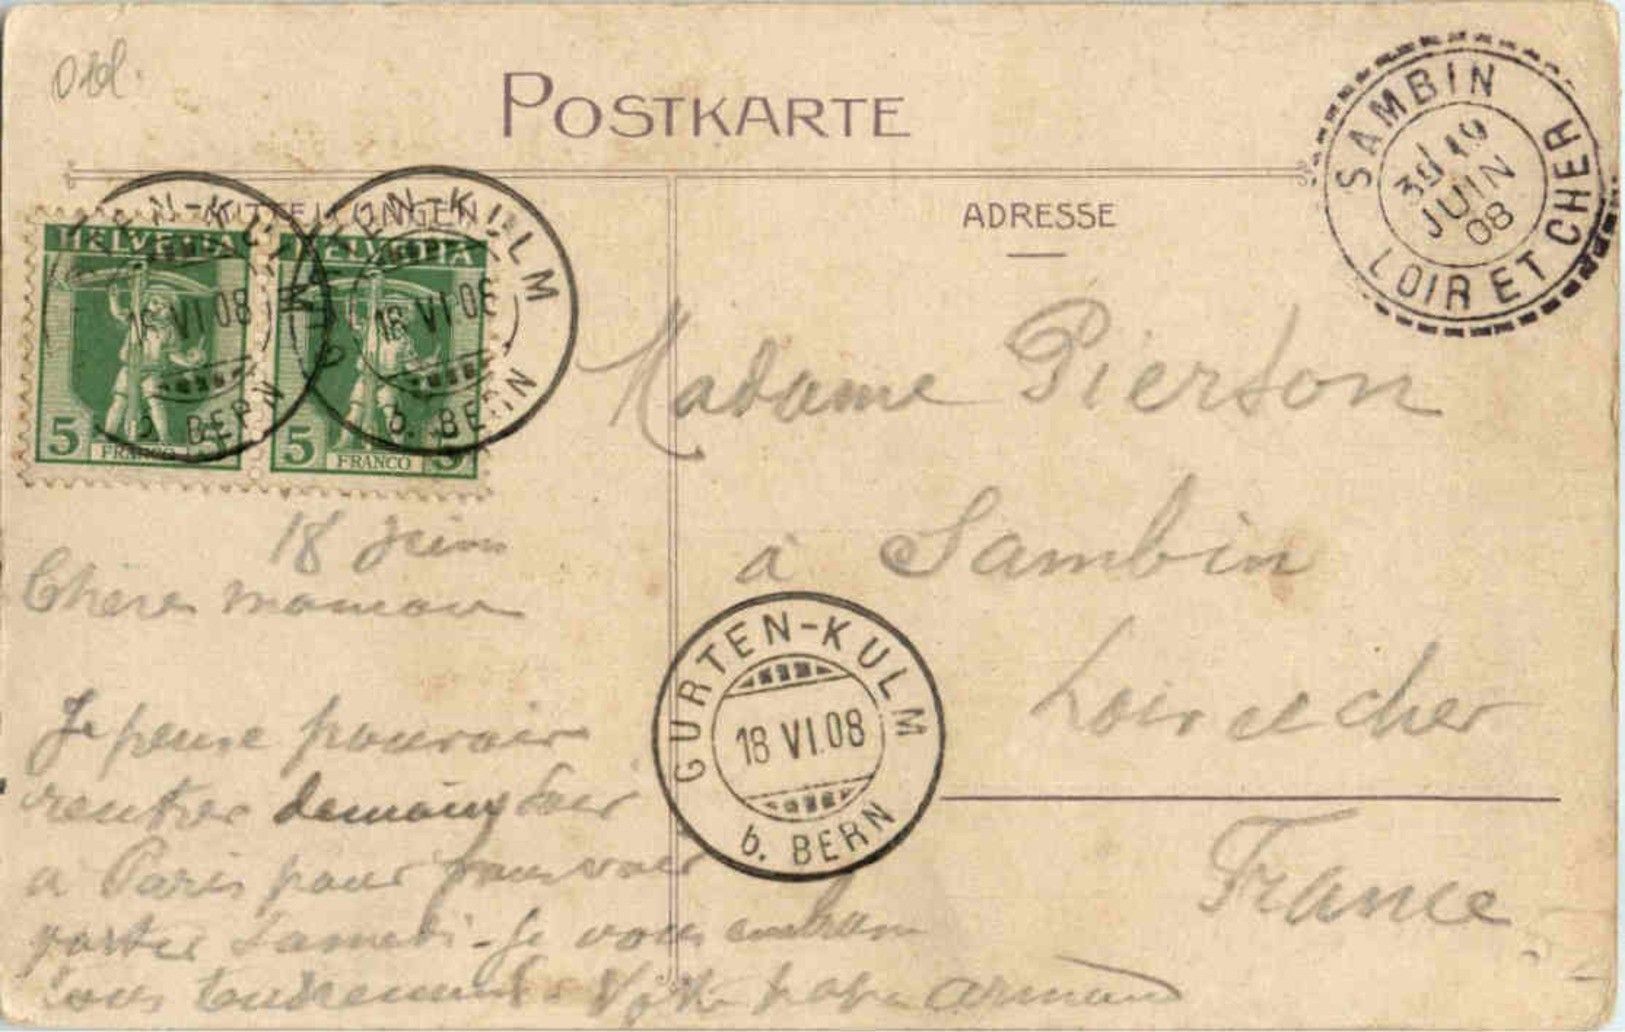 Postkarte
MITTEILUNGEN
ADRESSE
SAMBIN
19
JUIN
08
LOIR ET CHER
HELVETIA
HELVETIA
5
FRANCO
5
5
FRANCO
5
N-KU
18 VI 08
b. BERN
EN-KULM
18 VI 08
b. BERN
Madame Pierson
à Sambin
Loir et cher
France
GURTEN-KULM
18 VI.08
b. BERN
18 Juin
Chère maman
Je pense pouvoir
rentrer demain soir
à Paris pour pouvoir
partir Samedi - Je vous embrasse
tous tendrement. Votre papa armand